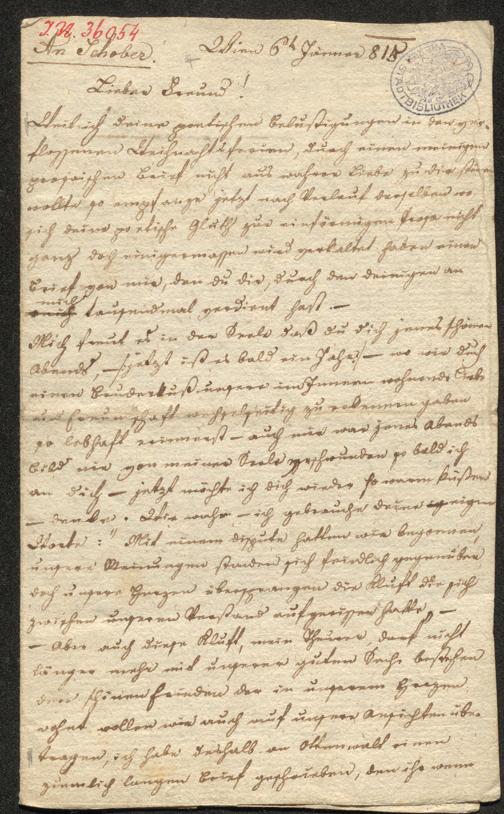 J.N. 36054
An Schober.
Wien 6t Jänner 815
STADTBIBLIOTHEK
Lieber Freund!
Weil ich deine poetischen Belustigungen in den ver-
flossenen Weihnachtsferien, durch einen meinigen
prosaischen Brief nicht aus wahrer Liebe zu dir stören
wollte so empfange jetzt nach Verlauf derselben wo
sich deine poetische Gluth zur einförmigen Prosa nicht
ganz doch einigermassen wird verkaltet haben einen
Brief von mir, den du dir, durch den deinigen an
mich tausendmal verdient hast. —
Mich freut es in der Seele daß du dich jenes schönen
Abends — jetzt ist es bald ein Jahr — wo wir durch
einen Bruderkuß unsere im Innern wohnende Liebe
und Freundschaft wechselseitig zu erkennen gaben
so lebhaft erinnerst — auch mir war jenes Abends
Bild nie von meiner Seele verschwunden so bald ich
an dich — jetzt möchte ich dich wieder so warm küssen
— denke. Wie wahr — ich gebrauche deine eigenen
Worte: " Mit einem Dispute hatten wir begonnen,
unsere Meinungen standen sich feindlich gegenüber
doch unsere Herzen übersprangen die Kluft die sich
zwischen unseren Verstand aufgerissen hatte" —
— Aber auch diese Kluft, mein Theurer, darf nicht
länger mehr mit unserer guten Sache bestehen
den schönen Frieden der in unserem Herzen
wohnt wollen wir auch auf unsere Ansichten über-
tragen, ich habe deshalb an Ottenwalt einen
ziemlich langen Brief geschrieben, den ihr wenn